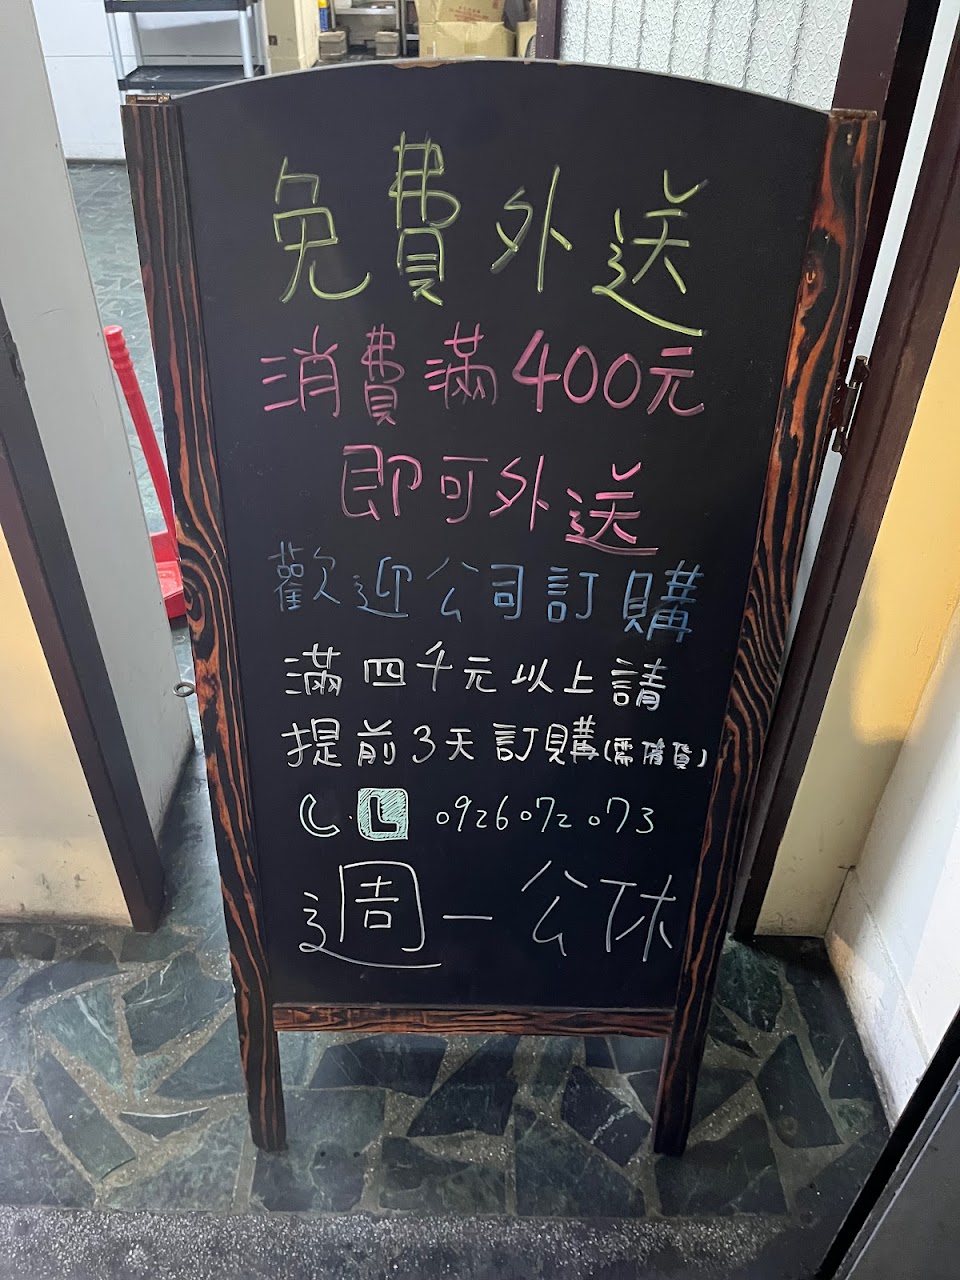 免費外送
消費滿400元
即可外送
歡迎公司訂購
滿四千元以上請
提前3天訂購(需備貨)
L 0926072073
週一公休